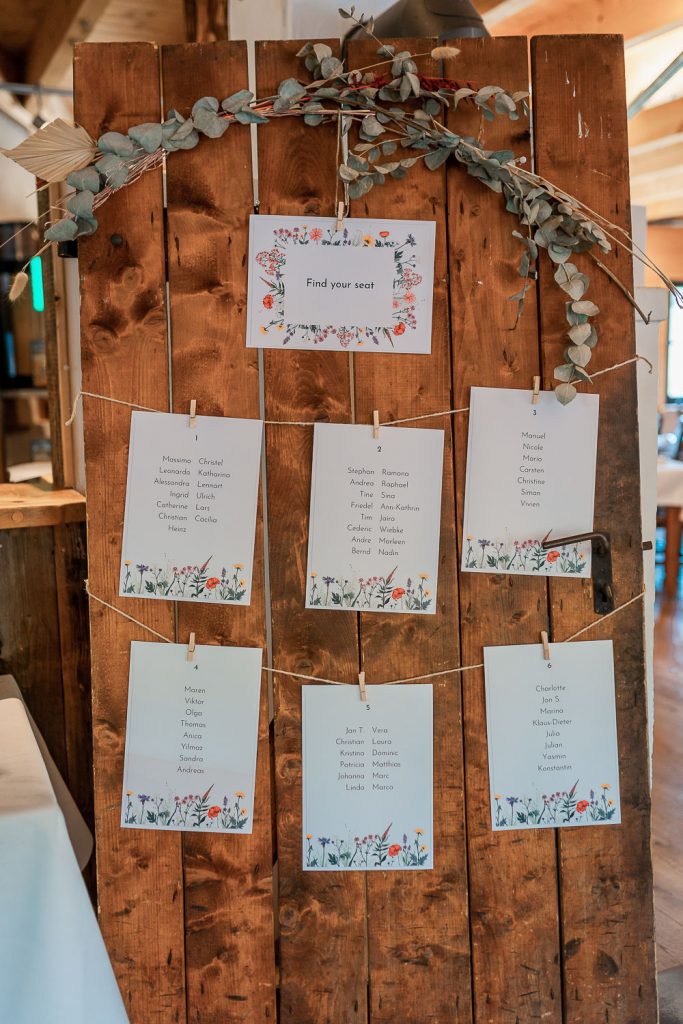 Find your seat
1
Massimo Christel
Leonardo Katharina
Alessandra Lennart
Ingrid Ulrich
Catherine Lars
Christian Cacilia
Heinz
2
Stephan Ramona
Andrea Raphael
Tine Sina
Friedel Ann-Kathrin
Tim Jaira
Cederic Wiebke
Andre Marleen
Bernd Nadin
3
Manuel
Nicole
Mario
Carsten
Christine
Siman
Vivien
4
Maren
Viktor
Olga
Thomas
Anica
Yilmaz
Sandra
Andreas
5
Jan T. Vera
Christian Laura
Kristina Dominic
Patricia Matthias
Johanna Marc
Linda Marco
6
Charlotte
Jan S.
Marina
Klaus-Dieter
Julia
Julian
Yasmin
Konstantin